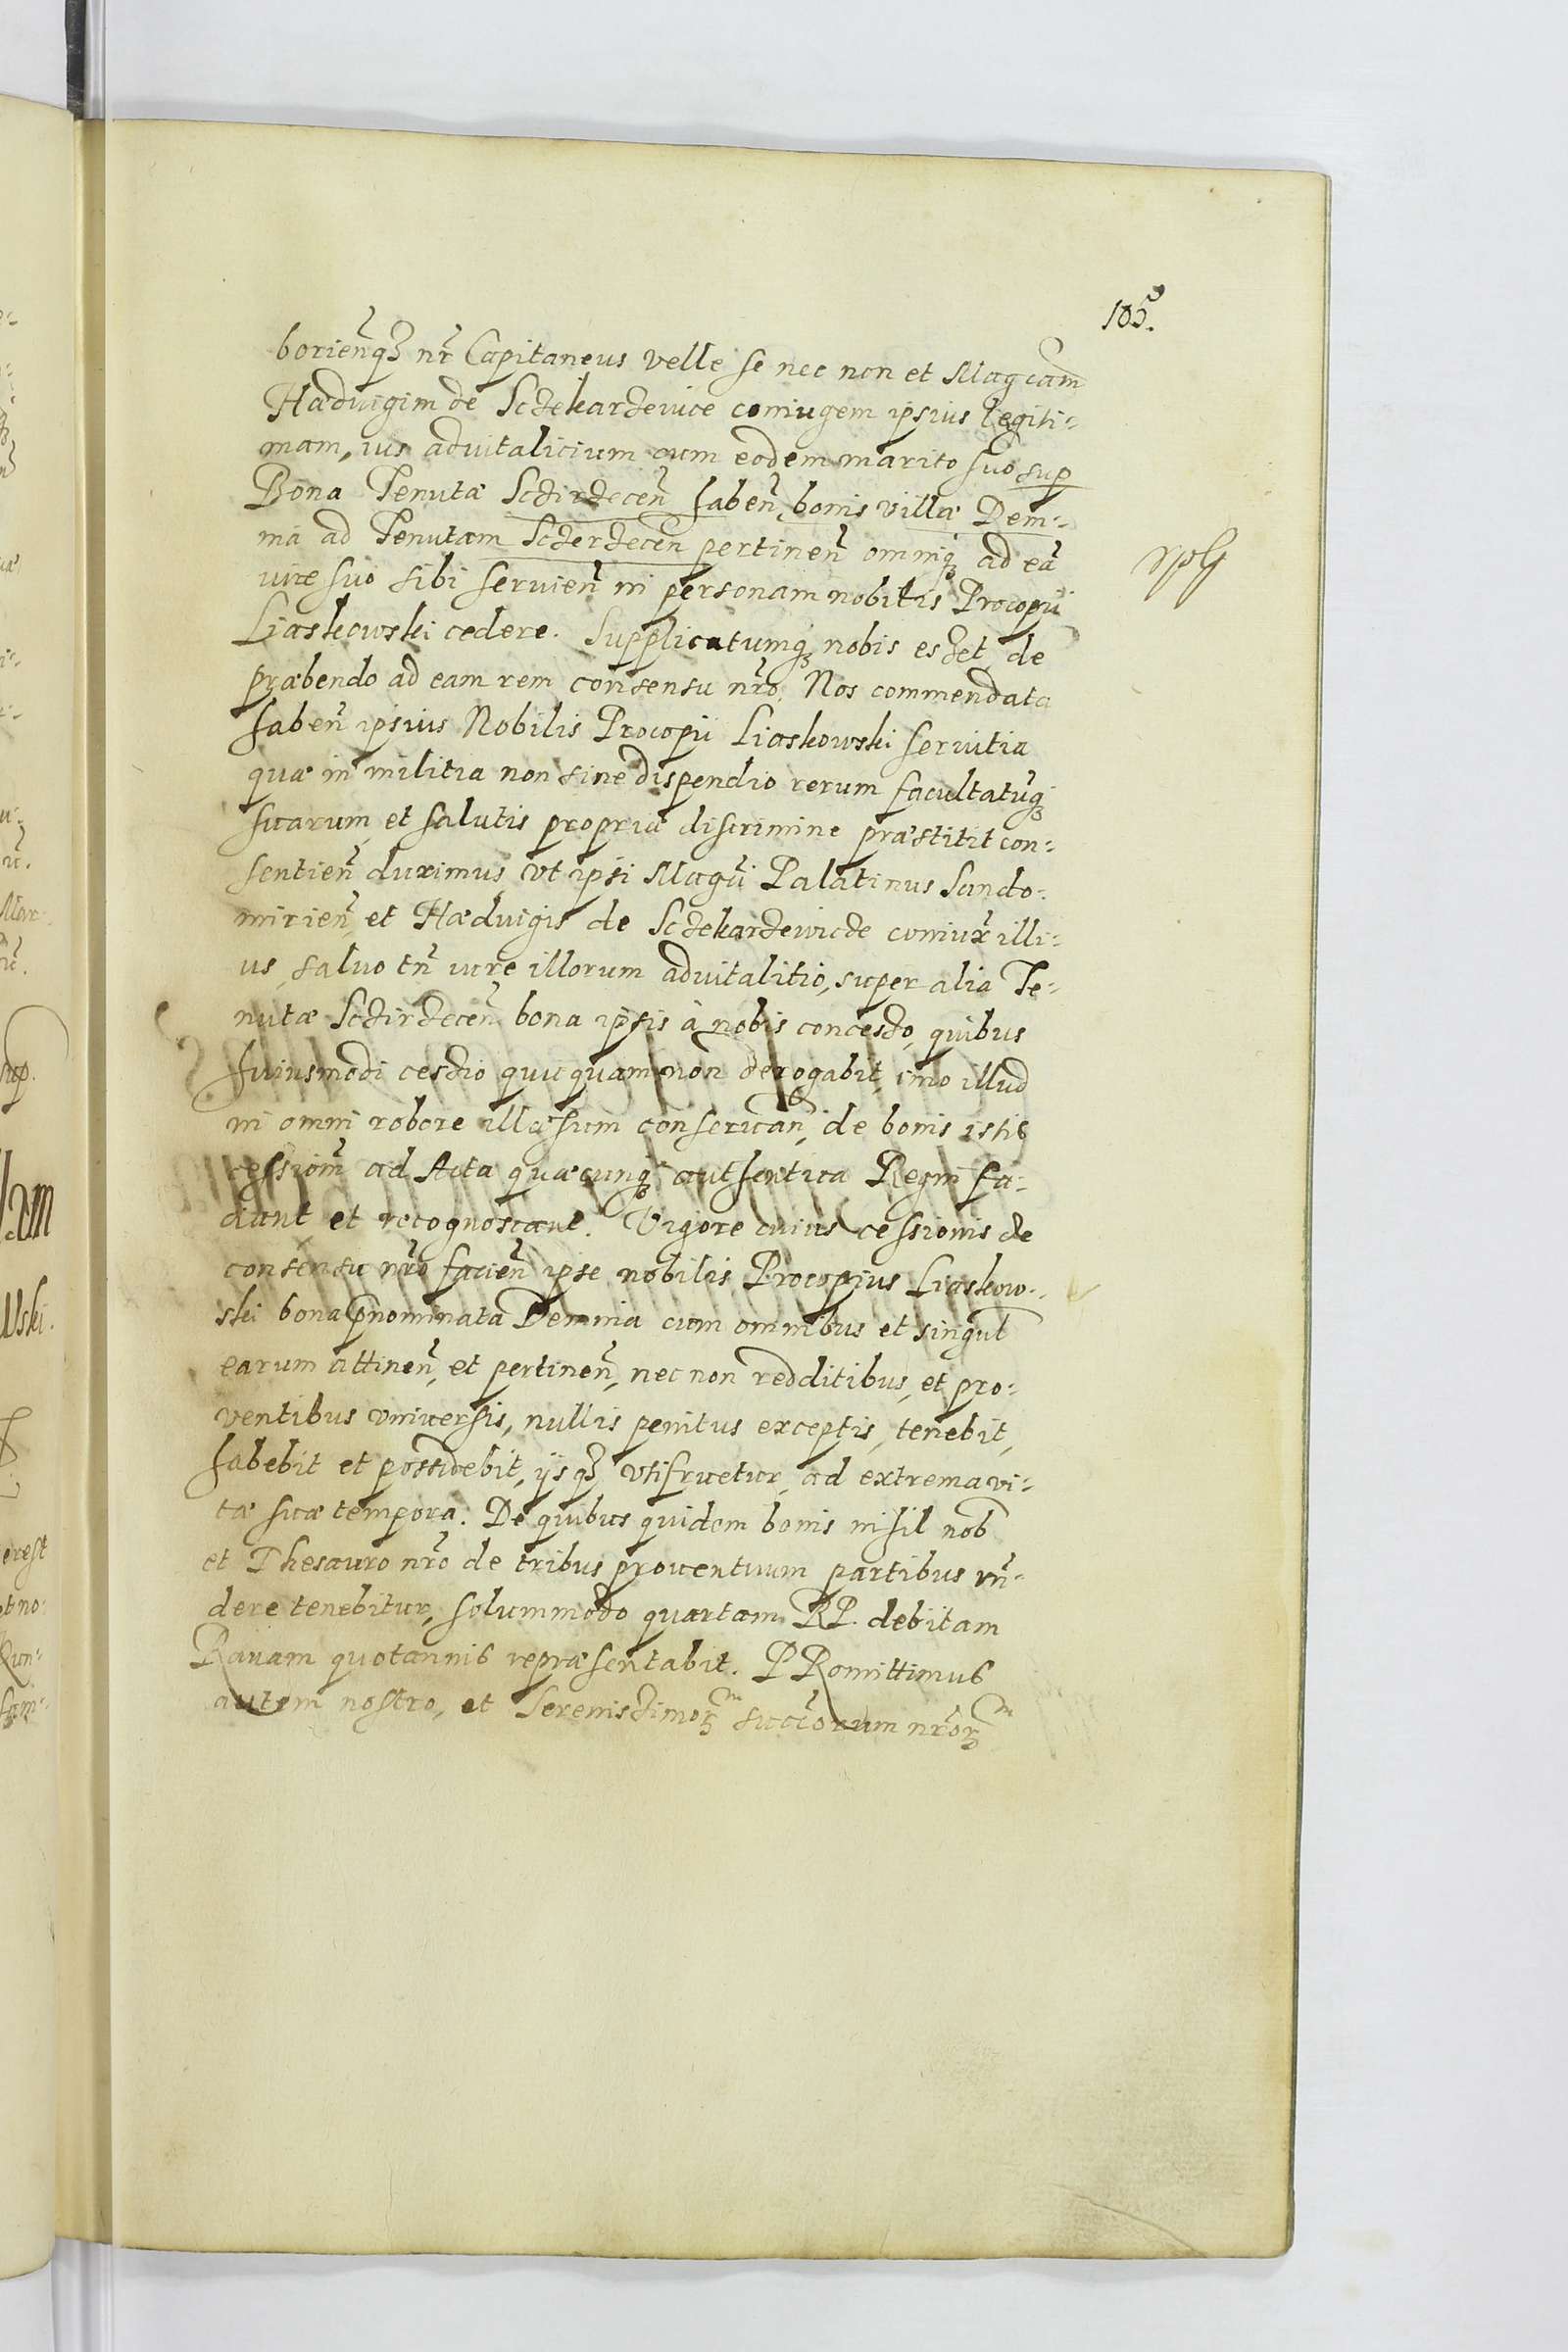 105.
borien̄q₃ nr̄ Capitaneus velle se nec non et Magcam
Hæduigim de Sczekarzewice coniugem ipsius legiti-
mam, ius aduitalicium cum eodem marito suo sup
Bona Tenutæ Sczirzecen̄ haben̄, bonis villæ Dem-
nia ad Tenutam Sczerzecen̄ pertinen̄ omniq₃ ad ea
iure suo sibi seruien̄ in personam nobilis Procopii
Liaskowski cedere. Supplicatumq₃ nobis esset de
præbendo ad eam rem consensu nr̄o. Nos commendata
haben̄ ipsius Nobilis Procopii Liaskowski seruitia
quæ in militia non sine dispendio rerum facultatūq₃
suarum et salutis propriæ discrimine præstitit con-
sentien̄ duximus, vt ipsi Magci Palatinus Sando-
mirien̄, et Hæduigis de Sczekarzewicze coniux illi-
us, saluo tn̄ iure illorum aduitalitio, super alia Te-
nutæ Sczirzecen̄ bona ipsis à nobis concesso, quibus
huiusmodi cessio quicquam non derogabit, imo illud
in omni robore illæsum conseruan̄, de bonis istis
cessionē ad Acta quæcunq₃ authentica Regni fa-
ciant et recognoscant. Vigore cuius cessionis de
consensu nr̄o facien̄ ipse nobilis Procopius Liaskow-
ski bona p̄nominata Demnia cum omnibus et singul
earum attinen̄, et pertinen̄, nec non redditibus, et pro-
ventibus vniversis, nullis penitus exceptis, tenebit,
habebit et possidebit, ijsq₃ vtifruetur, ad extrema vi-
tæ suæ tempora. De quibus quidem bonis nihil nob
et Thesauro nr̄o de tribus prouentuum partibus rn̄-
dere tenebitur, solummodo quartam RP. debitam
Rauam quotannis repræsentabit. PRomittimus
autem nostro, et Serenissimoꝝ succorum nr̄oꝝ